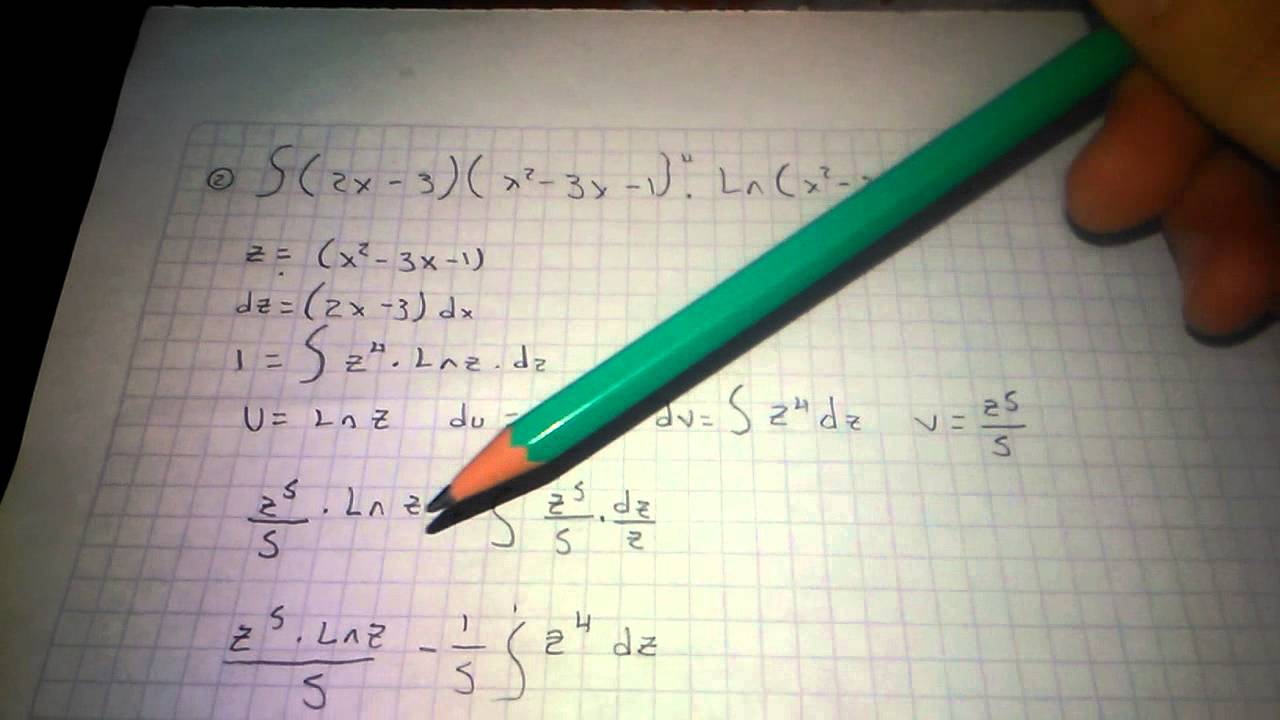 ② ∫(2x-3)(x²-3x-1)⁴. Ln(x²-
z = (x²-3x-1)
dz = (2x-3) dx
I = ∫ z⁴ · Lnz · dz
U = Ln z du = dv = ∫ z⁴ dz v = z⁵/5
z⁵/5 · Ln z ∫ z⁵/5 · dz/z
z⁵ · Lnz/5 - 1/5 ∫ z⁴ dz